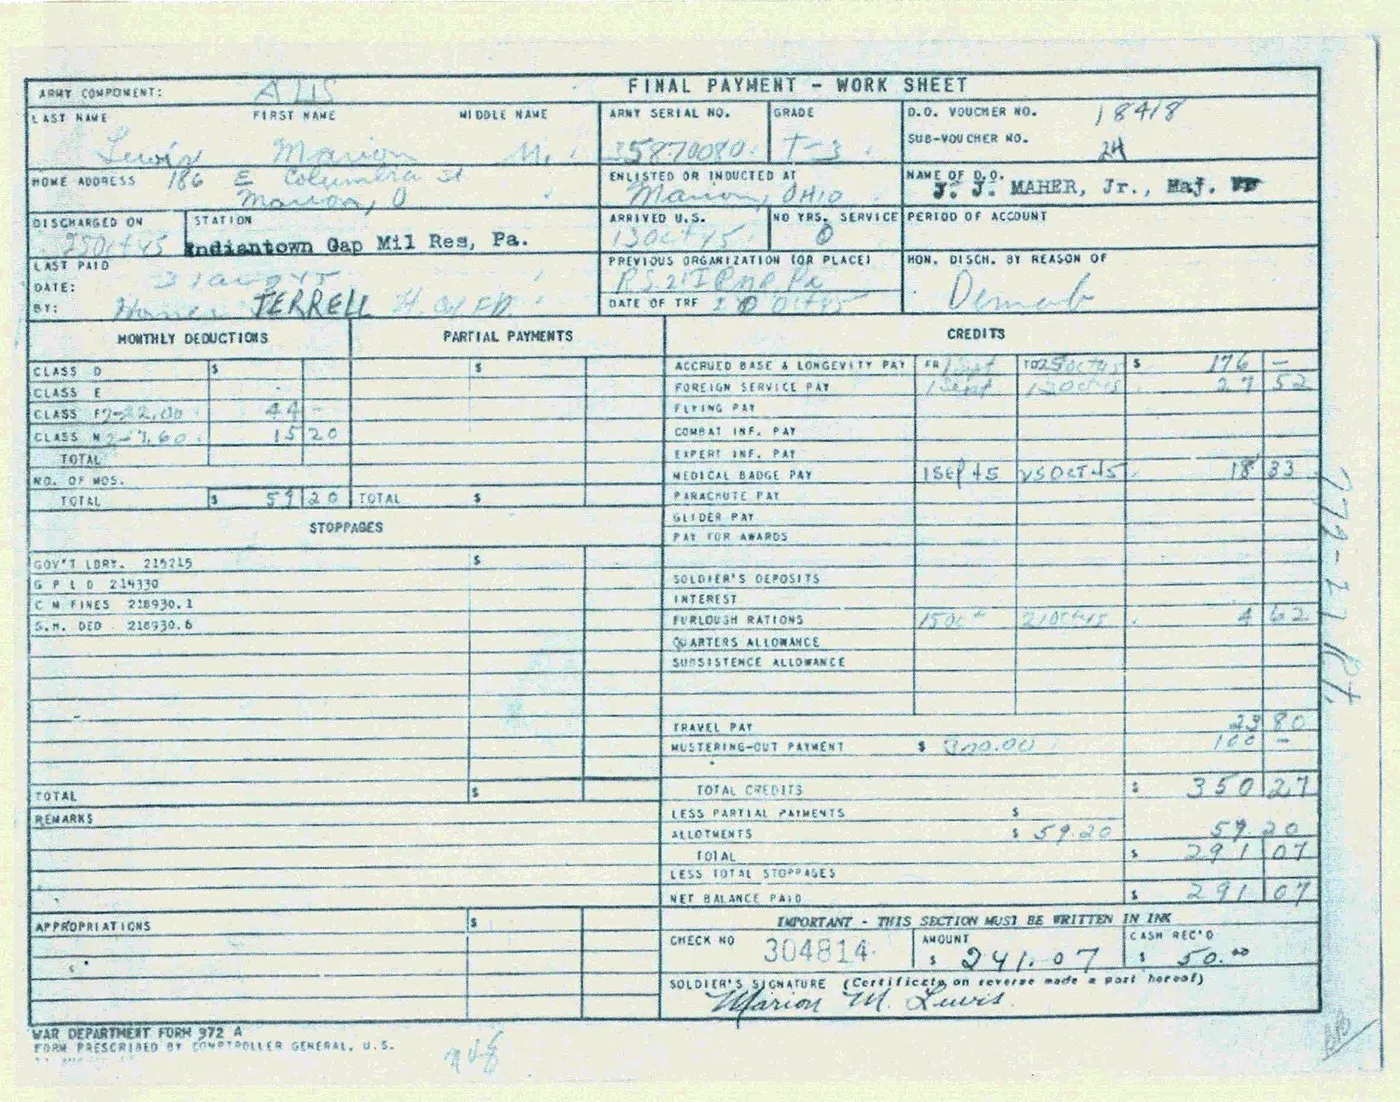 FINAL PAYMENT - WORK SHEET
ARMY COMPONENT: AUS
LAST NAME FIRST NAME MIDDLE NAME
Lewis Marion M.
ARMY SERIAL NO. GRADE
35870080 T-3
D.O. VOUCHER NO. 18418
SUB-VOUCHER NO. 24
HOME ADDRESS 186 E Columbia St
Marion, O
ENLISTED OR INDUCTED AT
Marion, OHIO
NAME OF D.O.
J. J. MAHER, Jr., Maj.
DISCHARGED ON STATION
25Oct45 Indiantown Gap Mil Res, Pa.
ARRIVED U.S. NO YRS. SERVICE
13Oct45 0
PERIOD OF ACCOUNT
LAST PAID
DATE: 31aug45
BY: TERRELL
PREVIOUS ORGANIZATION (OR PLACE)
DATE OF TRF 20 Oct45
HON. DISCH. BY REASON OF
Demob
MONTHLY DEDUCTIONS PARTIAL PAYMENTS
CLASS D $ $
CLASS E
CLASS F 2-22.00 44 -
CLASS N 2-7.60 15 20
TOTAL
NO. OF MOS.
TOTAL $ 59 20 TOTAL $
STOPPAGES
GOV'T LDRY. 215215 $
G P L D 214330
C M FINES 218930.1
S.H. DED 218930.6
TOTAL $
REMARKS
APPROPRIATIONS $
CREDITS
ACCRUED BASE & LONGEVITY PAY FR 1Sept TO 25Oct45 $ 176 -
FOREIGN SERVICE PAY 1Sept 13Oct45 27 52
FLYING PAY
COMBAT INF. PAY
EXPERT INF. PAY
MEDICAL BADGE PAY 1SEP45 25OCT45 18 33
PARACHUTE PAY
GLIDER PAY
PAY FOR AWARDS
SOLDIER'S DEPOSITS
INTEREST
FURLOUGH RATIONS 15Oct 21Oct45 4 62
QUARTERS ALLOWANCE
SUBSISTENCE ALLOWANCE
TRAVEL PAY 23 80
MUSTERING-OUT PAYMENT $ 300.00 100 -
TOTAL CREDITS $ 350 27
LESS PARTIAL PAYMENTS $
ALLOTMENTS $ 59.20 59.20
TOTAL $ 291 07
LESS TOTAL STOPPAGES
NET BALANCE PAID $ 291 07
IMPORTANT - THIS SECTION MUST BE WRITTEN IN INK
CHECK NO 304814 AMOUNT $ 241.07 CASH REC'D $ 50.00
SOLDIER'S SIGNATURE (Certificate on reverse made a part hereof)
Marion M. Lewis
WAR DEPARTMENT FORM 372 A
FORM PRESCRIBED BY COMPTROLLER GENERAL, U.S.